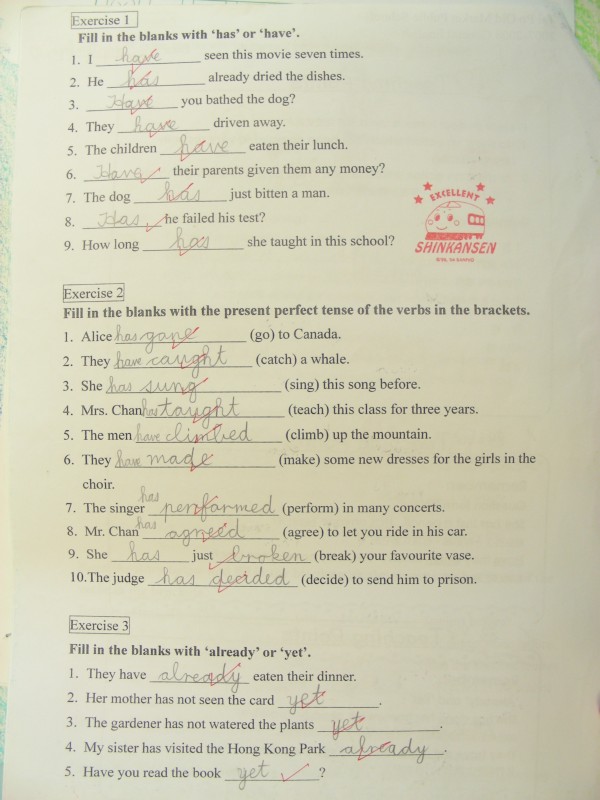 Exercise 1
Fill in the blanks with 'has' or 'have'.
1. I have seen this movie seven times.
2. He has already dried the dishes.
3. Have you bathed the dog?
4. They have driven away.
5. The children have eaten their lunch.
6. Have their parents given them any money?
7. The dog has just bitten a man.
8. Has he failed his test?
9. How long has she taught in this school?
EXCELLENT
SHINKANSEN
Exercise 2
Fill in the blanks with the present perfect tense of the verbs in the brackets.
1. Alice has gone (go) to Canada.
2. They have caught (catch) a whale.
3. She has sung (sing) this song before.
4. Mrs. Chan has taught (teach) this class for three years.
5. The men have climbed (climb) up the mountain.
6. They have made (make) some new dresses for the girls in the
choir.
7. The singer has performed (perform) in many concerts.
8. Mr. Chan has agreed (agree) to let you ride in his car.
9. She has just broken (break) your favourite vase.
10.The judge has decided (decide) to send him to prison.
Exercise 3
Fill in the blanks with 'already' or 'yet'.
1. They have already eaten their dinner.
2. Her mother has not seen the card yet.
3. The gardener has not watered the plants yet.
4. My sister has visited the Hong Kong Park already.
5. Have you read the book yet?